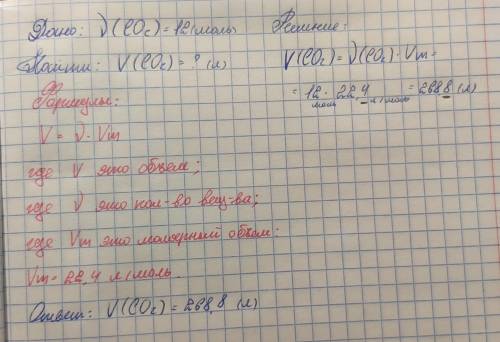 Дано: ν(CO₂) = 12 (моль)
Найти: V(CO₂) = ? (л)
Формулы:
V = ν · Vm
где V это объем;
где ν это кол-во вещ-ва;
где Vm это молярный объем:
Vm = 22,4 л/моль.
Ответ: V(CO₂) = 268,8 (л)
Решение:
V(CO₂) = ν(CO₂) · Vm =
= 12 моль · 22,4 л/моль = 268,8 (л)